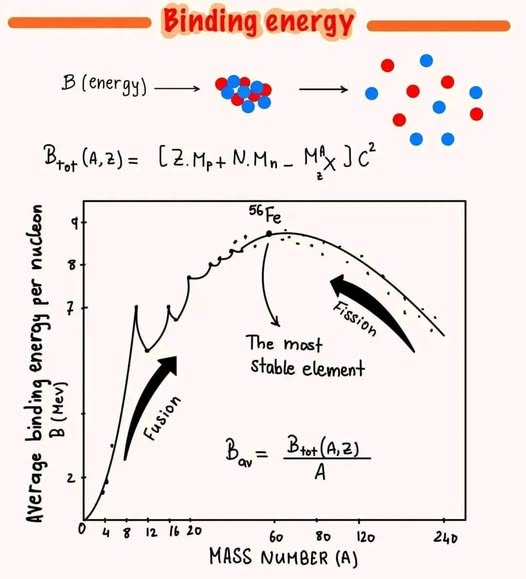 Binding energy
B (energy)
B_tot (A,Z) = [Z.M_p + N.M_n - M^A_z X] C²
⁵⁶Fe
9
8
7
2
Average binding energy per nucleon
B (Mev)
The most
stable element
Fission
Fusion
B_av = B_tot (A,Z) / A
0 4 8 12 16 20 60 80 120 240
MASS NUMBER (A)